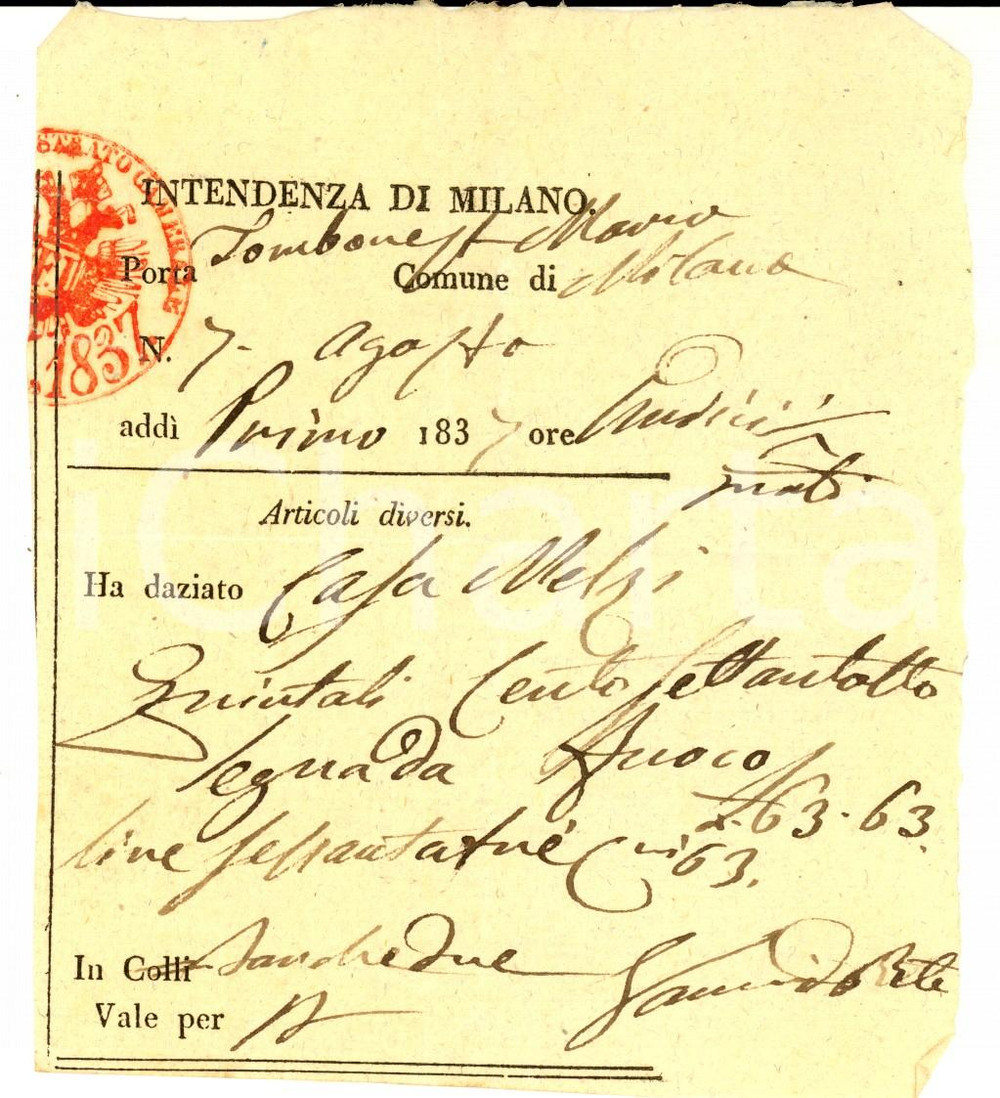 STRATO CAMERALE
1837
INTENDENZA DI MILANO.
Porta Tombone St. Marco
Comune di Milano
N. 7. Agosto
addì Primo 1837 ore Undici
matt.
Articoli diversi.
Ha daziato Casa Melzi
Quintali Cento settantotto
legna da fuoco
£. 63. 63.
lire sessantatré Cmi 63.
In Colli barche due
Vale per
iCharta